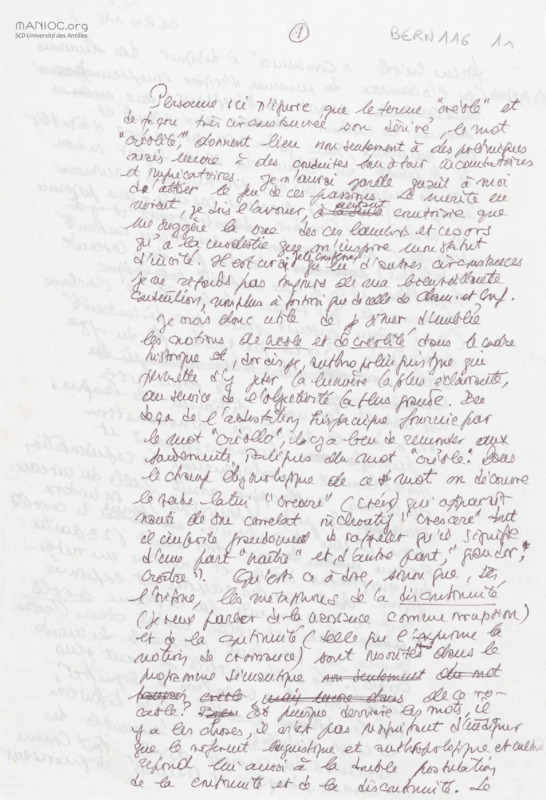 MANIOC.org
SCD Université des Antilles
1
BERN 116 1n
Personne ici n'ignore que le terme "créole" et
de façon très circonstanciée son dérivé, le mot
"créolité", donnent lieu non seulement à des polémiques
mais encore à des conduites tour à tour incantatoires
et imprécatoires. Je n'aurai garde quant à moi
d'attiser le feu de ces passions. Le mérite en
revient, je dois l'avouer, contraire que
me suggère la vue des ces lambris et ces ors
qu'à la
d'invité. Il est vrai que d'autres circonstances
je ne réponds pas toujours de ma bienveillante
Je crois donc utile de d'emblée
les notions de créole et de créolité dans le cadre
historique et, dirais-je, anthropolinguistique qui
permette d'y jeter la lumière la plus éclairante,
au service de l'objectivité la plus grande. En
deça de l'attestation hispanique fournie par
le mot "criollo", il y a lieu de remonter aux
fondements du mot "créole". Dans
le champ étymologique de ce mot on découvre
le verbe latin "creare" (créer) qui apparaît
muni de son corrélat inchoatif "crescere" dont
il importe de rappeler qu'il signifie
d'une part "naître" et d'autre part, "grandir,
croître". Qu'est-ce à dire, sinon que, dès
l'origine, les métaphores de la discontinuité
(je veux parler de la naissance comme irruption)
et de la continuité (telle que l'exprime la
notion de croissance) sont inscrites dans le
programme sémantique non seulement du mot
créole mais encore dans de ce
créole? Et puisque derrière les mots, il
y a les choses, il n'est pas d'indiquer
que le référent linguistique et anthropologique et
répond lui aussi à la double postulation
de la continuité et de la discontinuité. Le